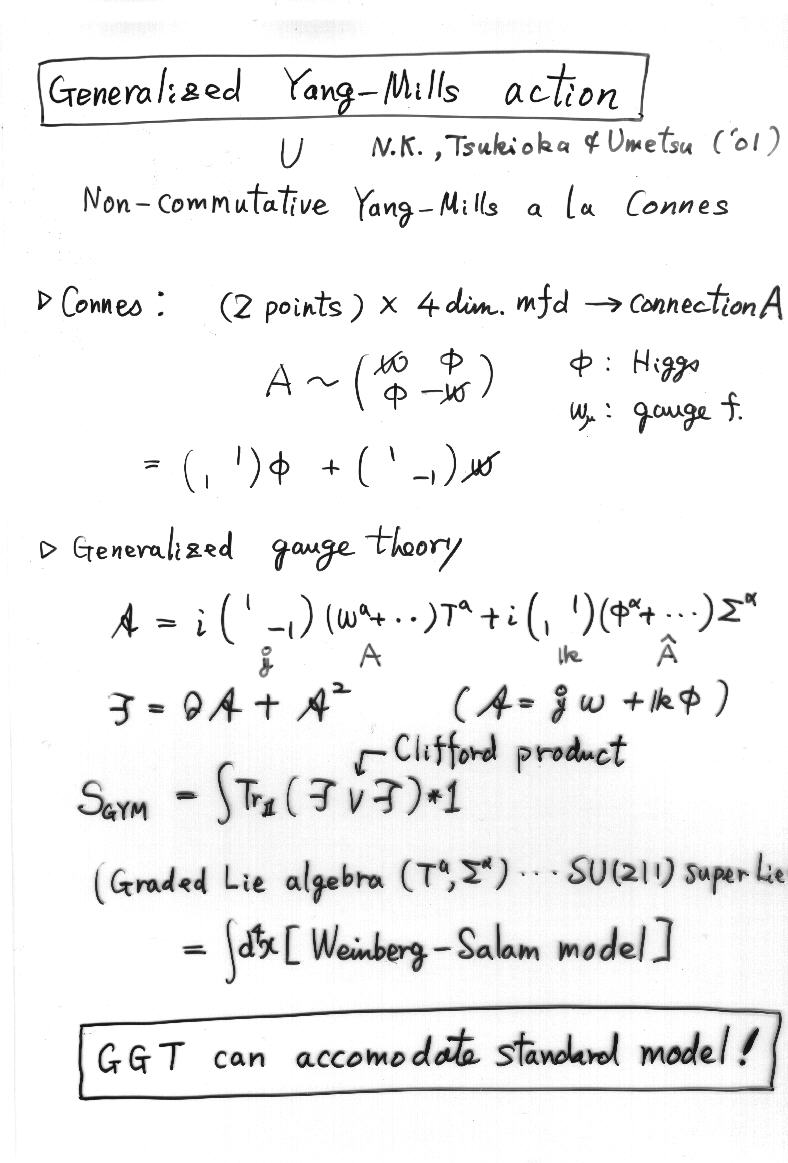 Generalized Yang-Mills action
∪ N.K., Tsukioka & Umetsu ('01)
Non-commutative Yang-Mills a la Connes
▷ Connes : (2 points) × 4 dim. mfd → connection A
A ~ ( ω̸ φ ; φ -ω̸ ) φ : Higgs
ω_μ : gauge f.
= ( , 1 ; 1 , ) φ + ( 1 , ; , -1 ) ω̸
▷ Generalized gauge theory
𝒜 = i ( 1 , ; , -1 ) (ω^a + ‥) T^a + i ( , 1 ; 1 , ) (φ^α + …) Σ^α
𝕛 A 𝕜 Â
ℱ = Q𝒜 + 𝒜² (𝒜 = 𝕛 ω + 𝕜 φ)
Clifford product
S_GYM = ∫ Tr_𝟙 (ℱ ∨ ℱ) * 1
(Graded Lie algebra (T^a, Σ^α) … SU(2|1) super Lie
= ∫ d⁴x [ Weinberg-Salam model ]
GGT can accomodate standard model!